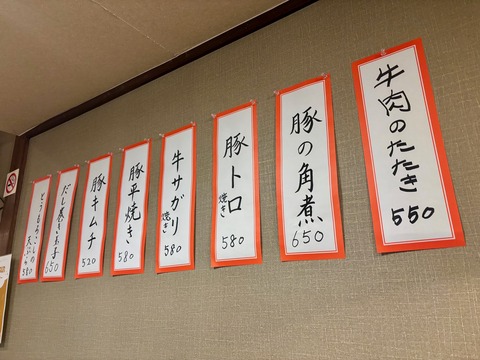 牛肉のたたき
550
豚の角煮
650
豚トロ焼き
580
牛サガリ焼き
580
豚平焼き
580
豚キムチ
520
だし巻き玉子
650
とうもろこしの天ぷら
580